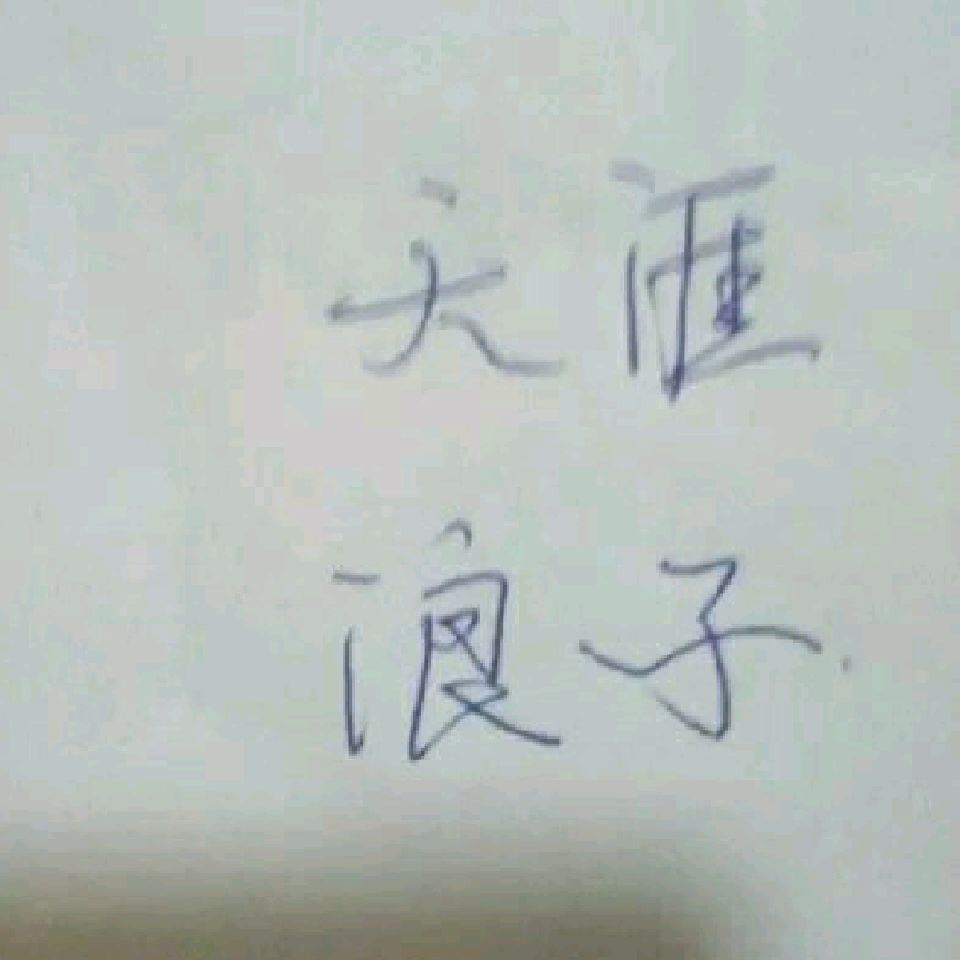 天涯
浪子